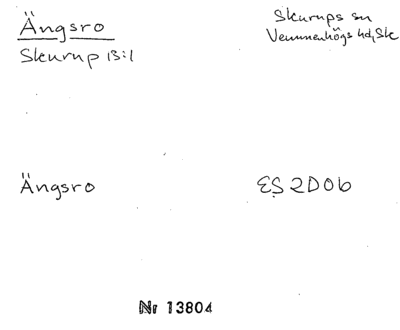 Ängsro
Skurup 13:1
Skurups sn
Vemmenhögs hd, Sk
Ängsro
ES 2D0b
Nr 13804